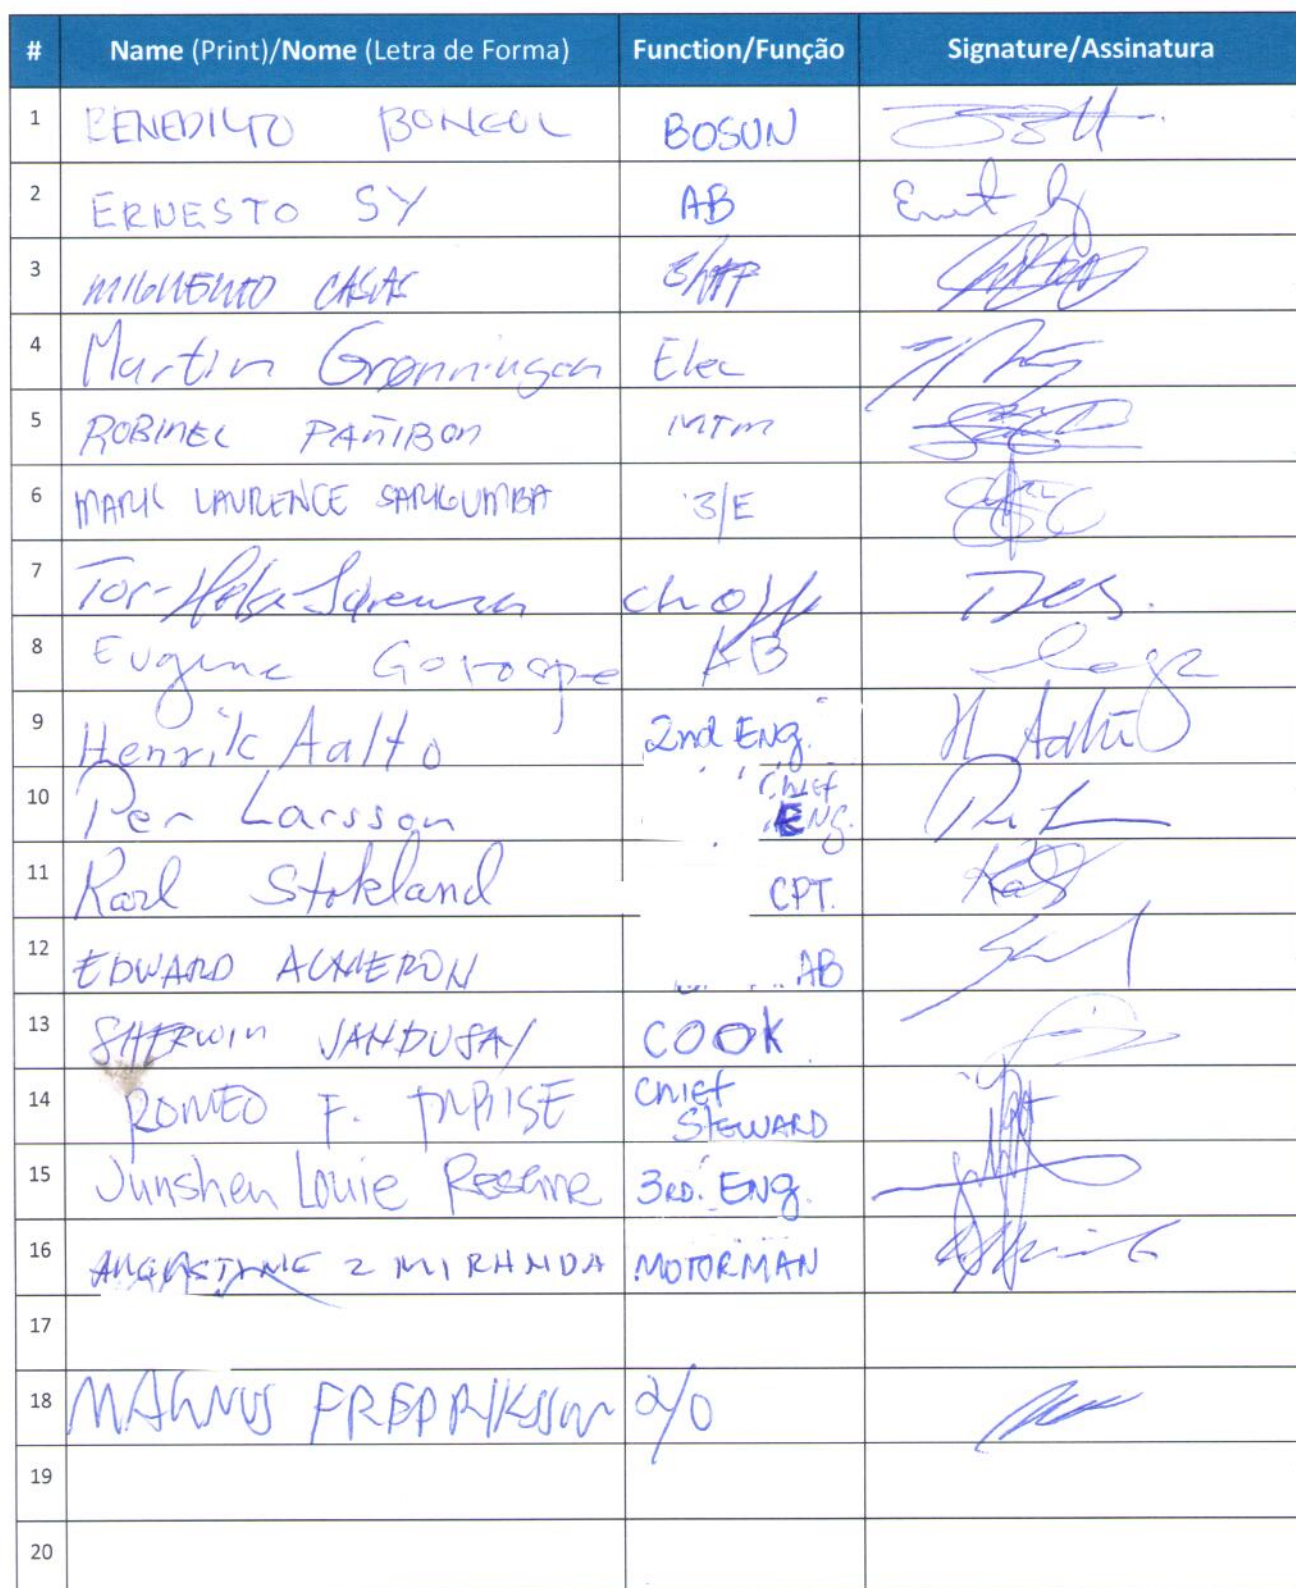 # Name (Print)/Nome (Letra de Forma) Function/Função Signature/Assinatura
1 BENEDICTO BOSUN
2 ERNESTO SY AB
3 CASAS
4 Martin Grønningen Elec
5 ROBINEL PAÑIBON MTM
6 MARK LAURENCE SARIGUMBA 3/E
7 Tor- Sørensen choff
8 Eugene Gorospe AB
9 Henrik Aalto 2nd ENG. H Aalto
10 Per Larsson Chief
ENG.
11 Karl Stokland CPT.
12 EDWARD ACMERON AB
13 SHERWIN JANDUSAY COOK
14 ROMEO F. CHIEF
STEWARD
15 Junshen Louie 3RD. ENG.
16 AUGUSTINE Z MIRANDA MOTORMAN
17
18 MAGNUS FREDRIKSSON 2/0
19
20